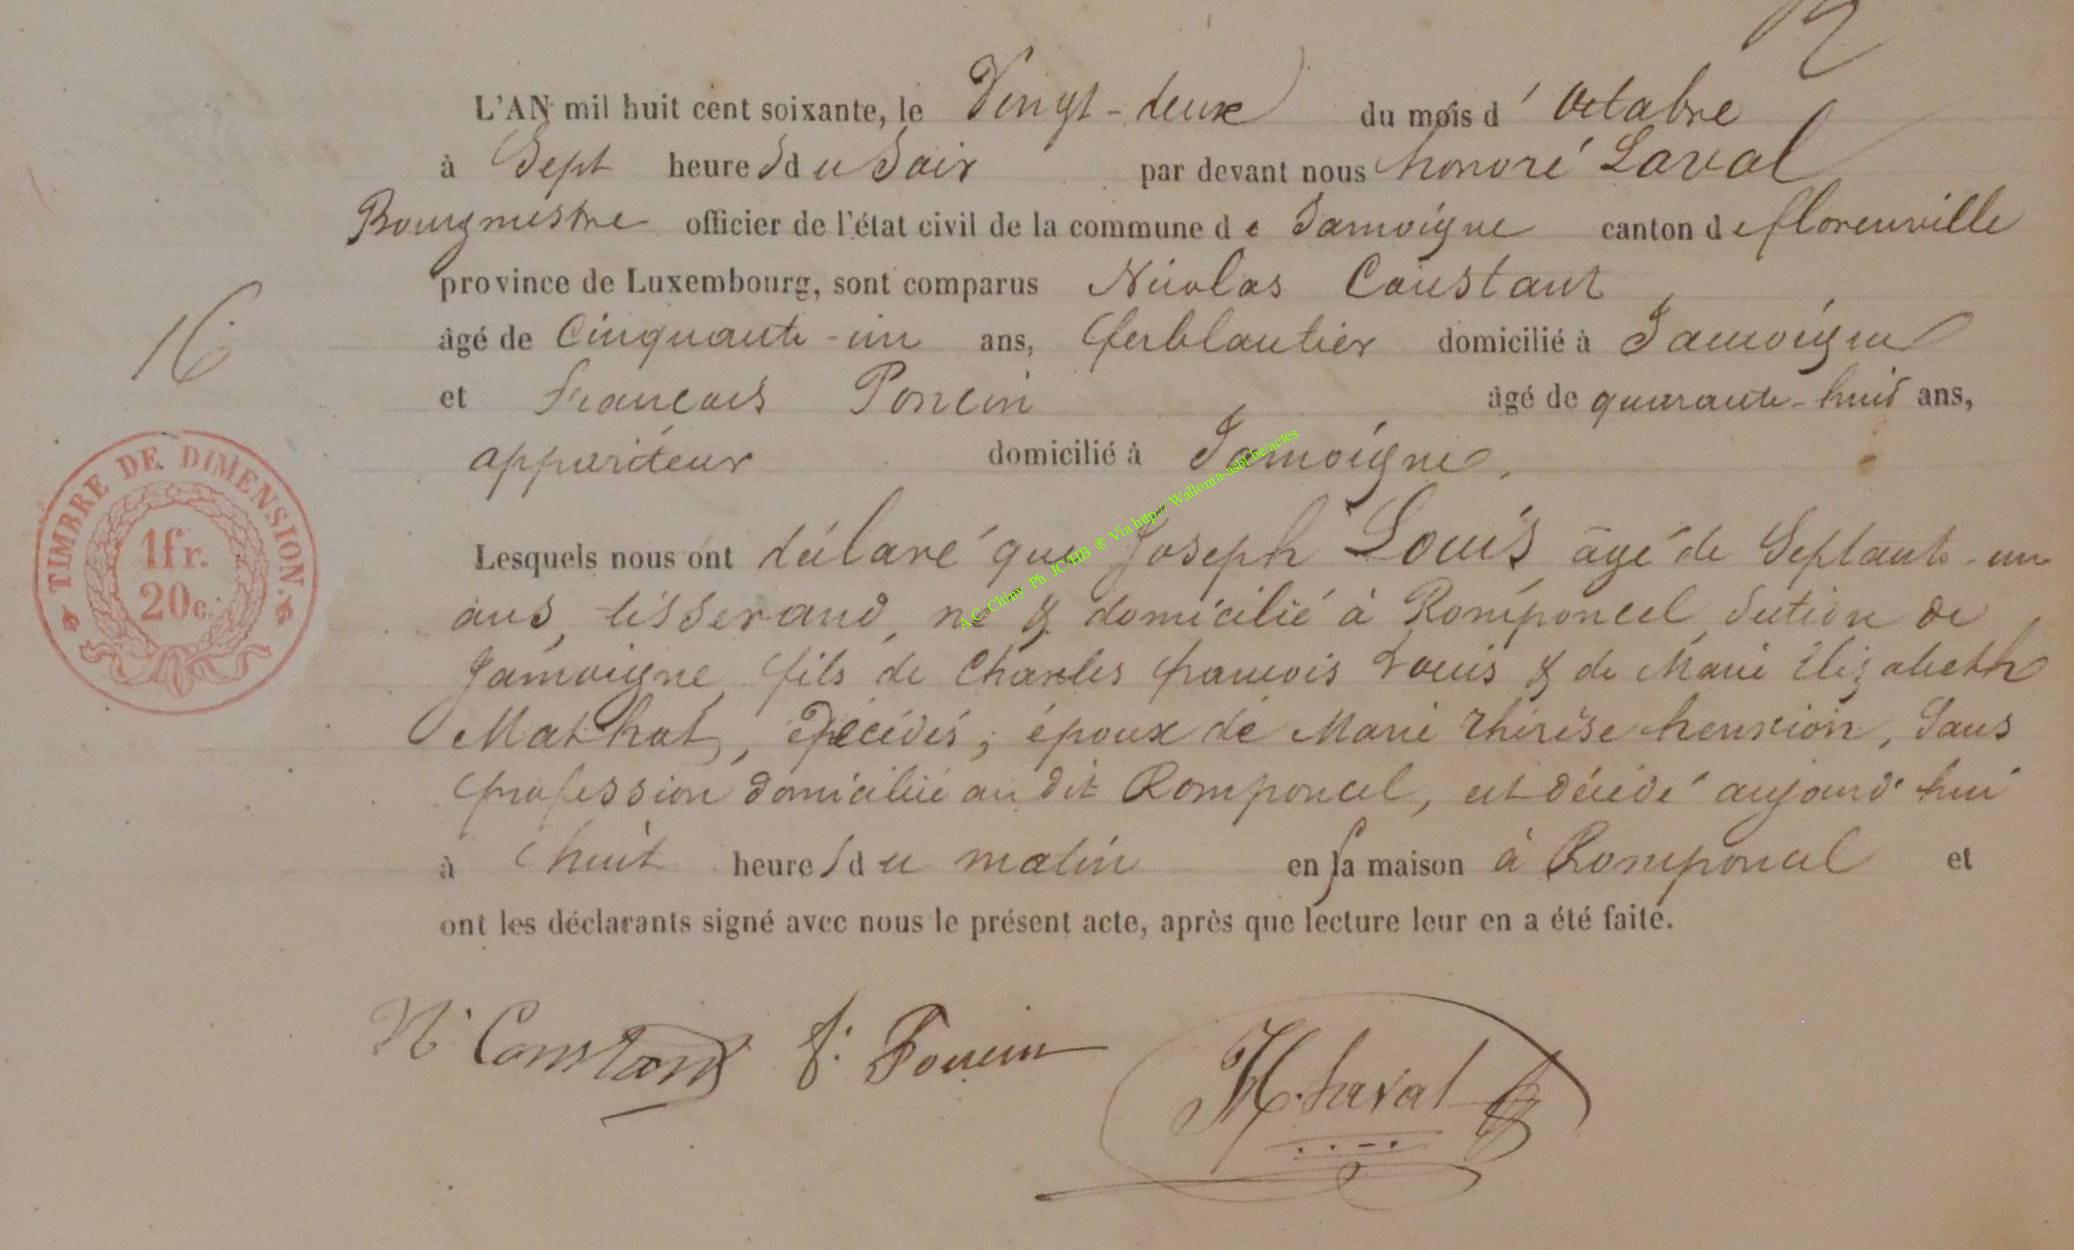 L'AN mil huit cent soixante, le Vingt-deux du mois d'Octobre
à Sept heures du Soir par devant nous honoré Laval
Bourgmestre officier de l'état civil de la commune de Jamoigne canton de florenville
province de Luxembourg, sont comparus Nicolas Constant
16
âgé de Cinquante-un ans, ferblantier domicilié à Jamoigne
et François Poncin âgé de quarante-huit ans,
appariteur domicilié à Jamoigne.
TIMBRE DE DIMENSION.
1fr.
20c.
Lesquels nous ont déclaré que Joseph Louis âgé de Septante-un
ans, tisserand, né & domicilié à Romponcel, Section de
Jamoigne, fils de Charles françois Louis & de Marie Elizabeth
Mathot, décédés, époux de Marie Thérèse henrion, Sans
profession domiciliée au dit Romponcel, est décédé aujourd'hui
à huit heures du matin en sa maison à Romponcel et
ont les déclarants signé avec nous le présent acte, après que lecture leur en a été faite.
N. Constant f. Poncin H. Laval
A.C. Chiny Ph. JC/HB ® Via http:// Wallonia-asbl.be/actes